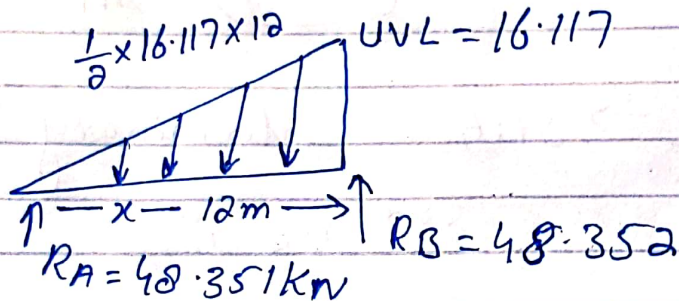 1/2 × 16.117 × 12
UVL = 16.117
x
12m
RA = 48.351 KN
RB = 48.352